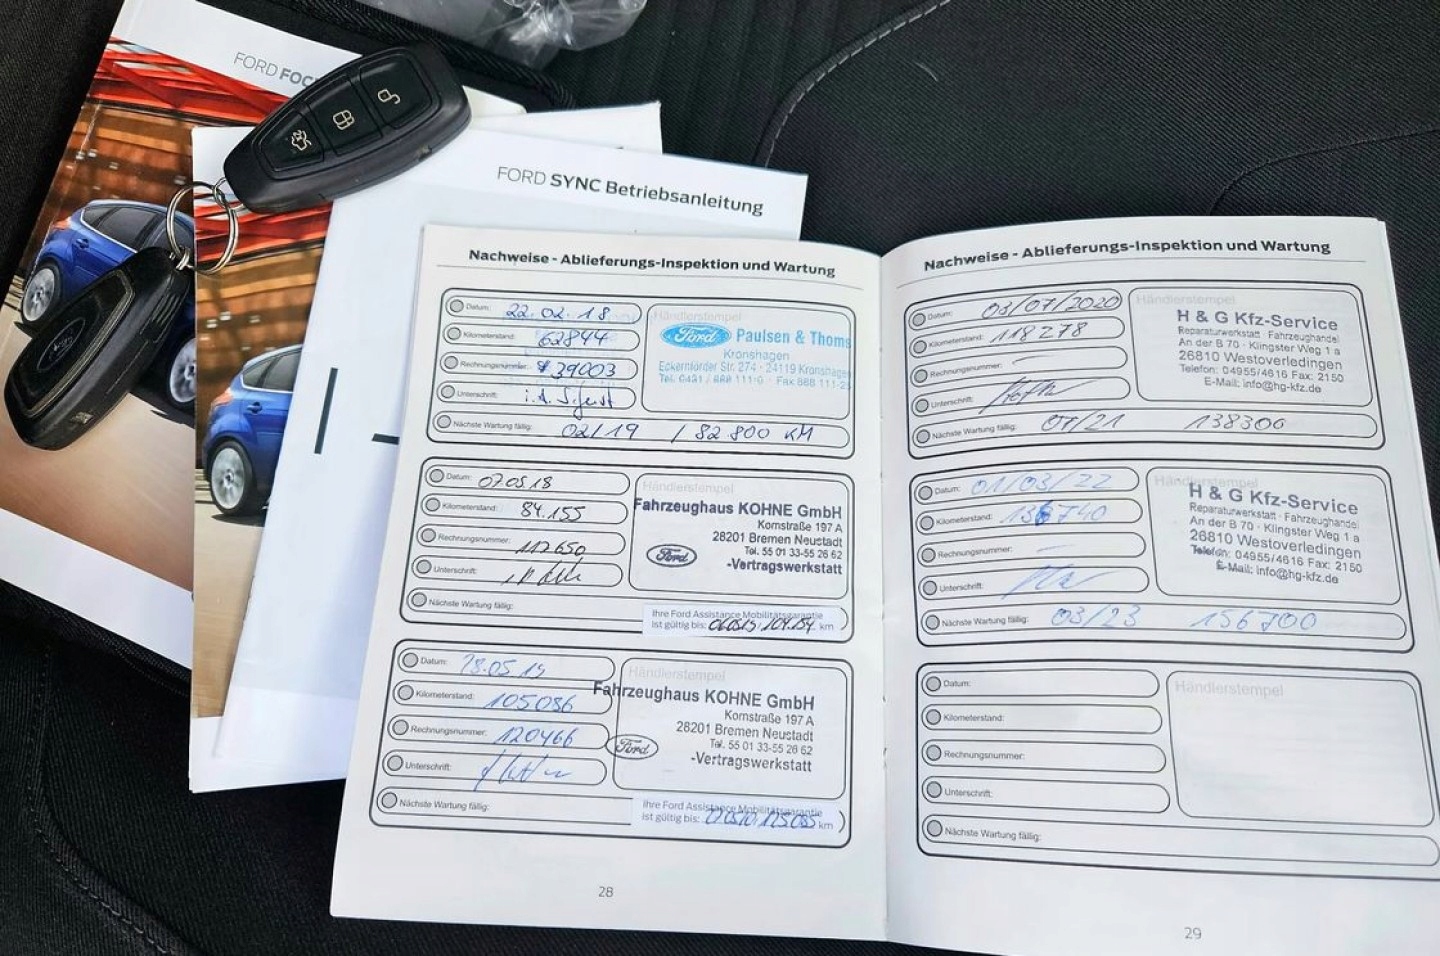 FORD FOC
FORD SYNC Betriebsanleitung
Nachweise - Ablieferungs-Inspektion und Wartung
Datum: 22.02.18
Kilometerstand: 62844
Rechnungsnummer: 39003
Unterschrift:
Nächste Wartung fällig: 02/19 / 82 800 KM
Händlerstempel
Ford Paulsen & Thoms
Kronshagen
Eckernförder Str. 274 · 24119 Kronshagen
Datum: 07.05.18
Kilometerstand: 84.155
Rechnungsnummer: 112650
Unterschrift:
Nächste Wartung fällig:
Händlerstempel
Fahrzeughaus KOHNE GmbH
Kornstraße 197 A
28201 Bremen Neustadt
Tel. 55 01 33-55 26 62
Ford
-Vertragswerkstatt
Ihre Ford Assistance Mobilitätsgarantie
ist gültig bis: km
Datum: 05.19
Kilometerstand: 105086
Rechnungsnummer: 120466
Unterschrift:
Nächste Wartung fällig:
Händlerstempel
Fahrzeughaus KOHNE GmbH
Kornstraße 197 A
28201 Bremen Neustadt
Tel. 55 01 33-55 26 62
Ford
-Vertragswerkstatt
Ihre Ford Assistance Mobilitätsgarantie
ist gültig bis: km
28
Nachweise - Ablieferungs-Inspektion und Wartung
Datum: 03/07/2020
Kilometerstand: 118278
Rechnungsnummer:
Unterschrift:
Nächste Wartung fällig: 07/21 138300
Händlerstempel
H & G Kfz-Service
Reparaturwerkstatt · Fahrzeughandel
An der B 70 · Klingster Weg 1 a
26810 Westoverledingen
Telefon: 04955/4616 Fax: 2150
E-Mail: info@hg-kfz.de
Datum: 01/03/22
Kilometerstand: 136740
Rechnungsnummer:
Unterschrift:
Nächste Wartung fällig: 03/23 156700
Händlerstempel
H & G Kfz-Service
Reparaturwerkstatt · Fahrzeughandel
An der B 70 · Klingster Weg 1 a
26810 Westoverledingen
Telefon: 04955/4616 Fax: 2150
E-Mail: info@hg-kfz.de
Datum:
Kilometerstand:
Rechnungsnummer:
Unterschrift:
Nächste Wartung fällig:
Händlerstempel
29